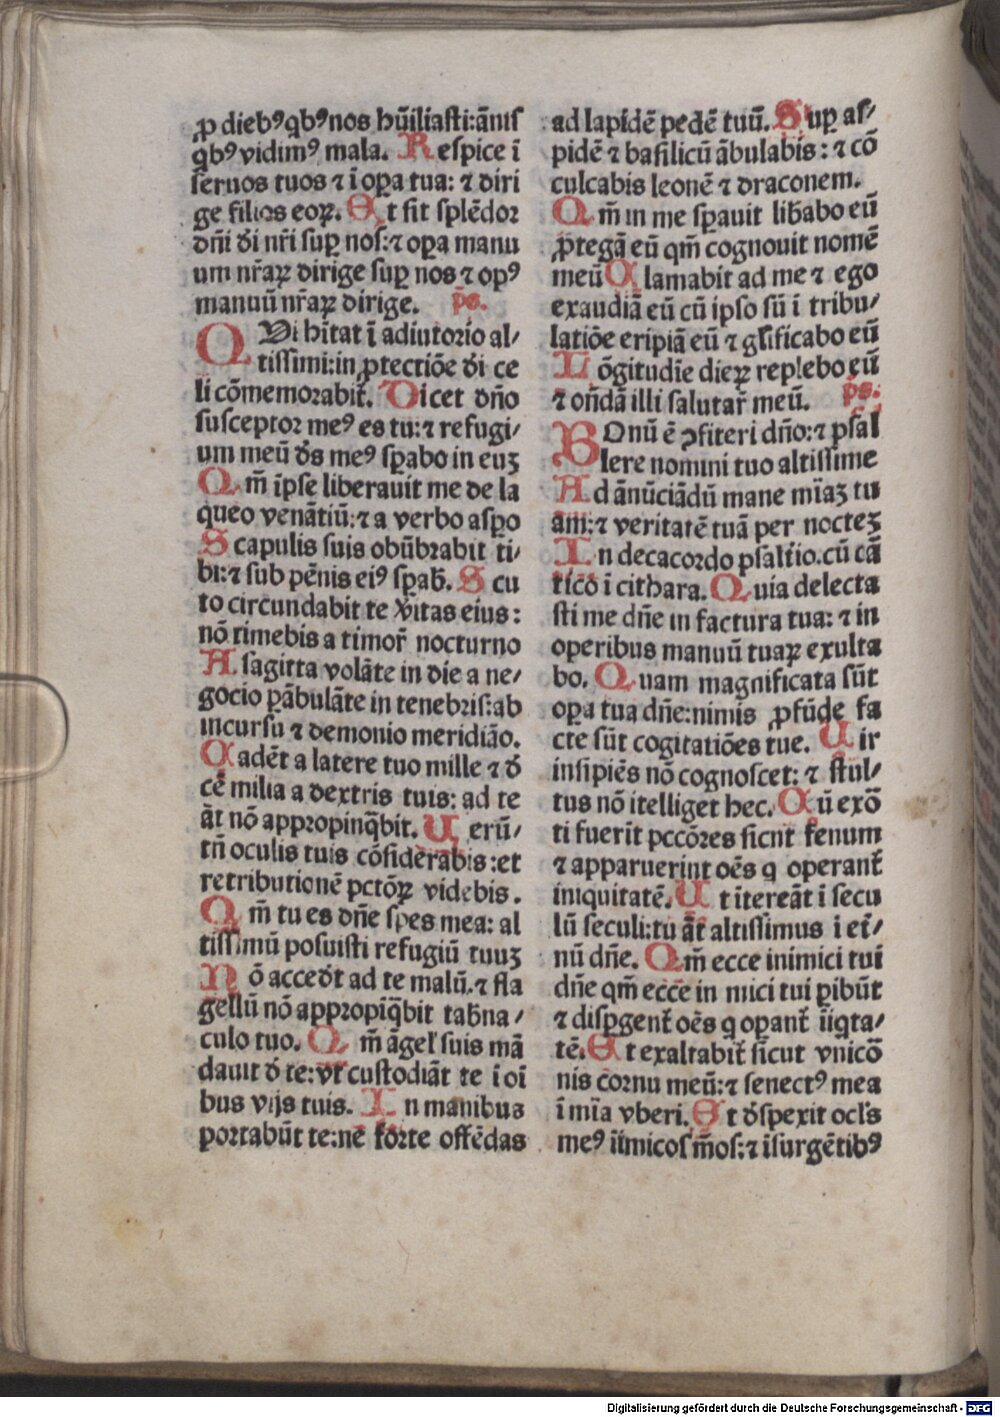 ꝓ diebꝰ qbꝰ nos hũiliasti:ãnis
qbꝰ vidimꝰ mala. Respice ĩ
seruos tuos ⁊ ĩ oꝑa tua: ⁊ diri
ge filios eoꝝ. Et sit splẽdor
dñi dĩ nr̃i suꝑ nos:⁊ oꝑa manu
um nr̃aꝝ dirige suꝑ nos ⁊ opꝰ
manuũ nr̃aꝝ dirige. p̃s.
QVi hĩtat ĩ adiutorio al/
tissimi:in ꝓtectiõe dĩ ce
li cõmemorabit̃. Dicet dño
susceptor meꝰ es tu:⁊ refugi/
um meũ ds̃ meꝰ sꝑabo in euꝫ
Qm̃ ĩpse liberauit me de la
queo venãtiũ:⁊ a verbo asꝑo
Scapulis suis obũbrabit ti/
bi:⁊ sub pẽnis eiꝰ sꝑab̃. Scu
to circundabit te ṽitas eius:
nõ timebis a timor̃ nocturno
A sagitta volãte in die a ne/
gocio ꝑãbulãte in tenebris:ab
incursu ⁊ demonio meridião.
Cadẽt a latere tuo mille ⁊ d̃
cẽ milia a dextris tuis: ad te
ãt nõ appropinq̃bit. Uerũ/
tñ oculis tuis cõsiderabis:et
retributionẽ pctõꝝ videbis.
Qm̃ tu es dñe spes mea: al
tissimũ posuisti refugiũ tuuꝫ
Nõ acced̃t ad te malũ.⁊ fla
gellũ nõ appropiq̃bit tab̃na/
culo tuo. Qm̃ ãgel̃ suis mã
dauit d̃ te:vt custodiãt te ĩ oĩ
bus vijs tuis. In manibus
portabũt te:ne forte offẽdas
ad lapidẽ pedẽ tuũ. Suꝑ as/
pidẽ ⁊ basilicũ ãbulabis: ⁊ cõ
culcabis leonẽ ⁊ draconem.
Qm̃ in me sꝑauit lib̃abo eũ
ꝓtegã eũ qm̃ cognouit nomẽ
meũ Clamabit ad me ⁊ ego
exaudiã eũ cũ ipso sũ ĩ tribu/
latiõe eripiã eũ ⁊ gl̃ificabo eũ
Lõgitudĩe dieꝝ replebo eũ
⁊ oñdã illi salutar̃ meũ. ps.
BOnũ ẽ ꝯfiteri dño:⁊ psal
lere nomini tuo altissime
Ad ãnũciãdũ mane mĩaꝫ tu
am:⁊ veritatẽ tuã per nocteꝫ
In decacordo psalt̃io.cũ cã
ticõ ĩ cithara. Quia delecta
sti me dñe in factura tua: ⁊ in
operibus manuũ tuaꝝ exulta
bo. Quam magnificata sũt
oꝑa tua dñe:nimis ꝓfũde fa
cte sũt cogitatiões tue. Uir
insipiẽs nõ cognoscet: ⁊ stul/
tus nõ ĩtelliget hec. Cũ exõ
ti fuerit pccõres sicut fenum
⁊ apparuerint oẽs q operant̃
iniquitatẽ. Ut ĩtereãt ĩ secu
lũ seculi:tu ãt altissimus ĩ et̃/
nũ dñe. Qm̃ ecce inimici tui
dñe qm̃ ecce in mici tui ꝑibũt
⁊ disꝑgent̃ oẽs q oꝑant̃ ĩiqta/
tẽ. Et exaltabit̃ sicut vnicõ
nis cornu meũ:⁊ senectꝰ mea
ĩ mĩa vberi. Et d̃spexit ocl̃s
meꝰ iĩmicos m̃os:⁊ ĩsurgẽtibꝰ
Digitalisierung gefördert durch die Deutsche Forschungsgemeinschaft - DFG